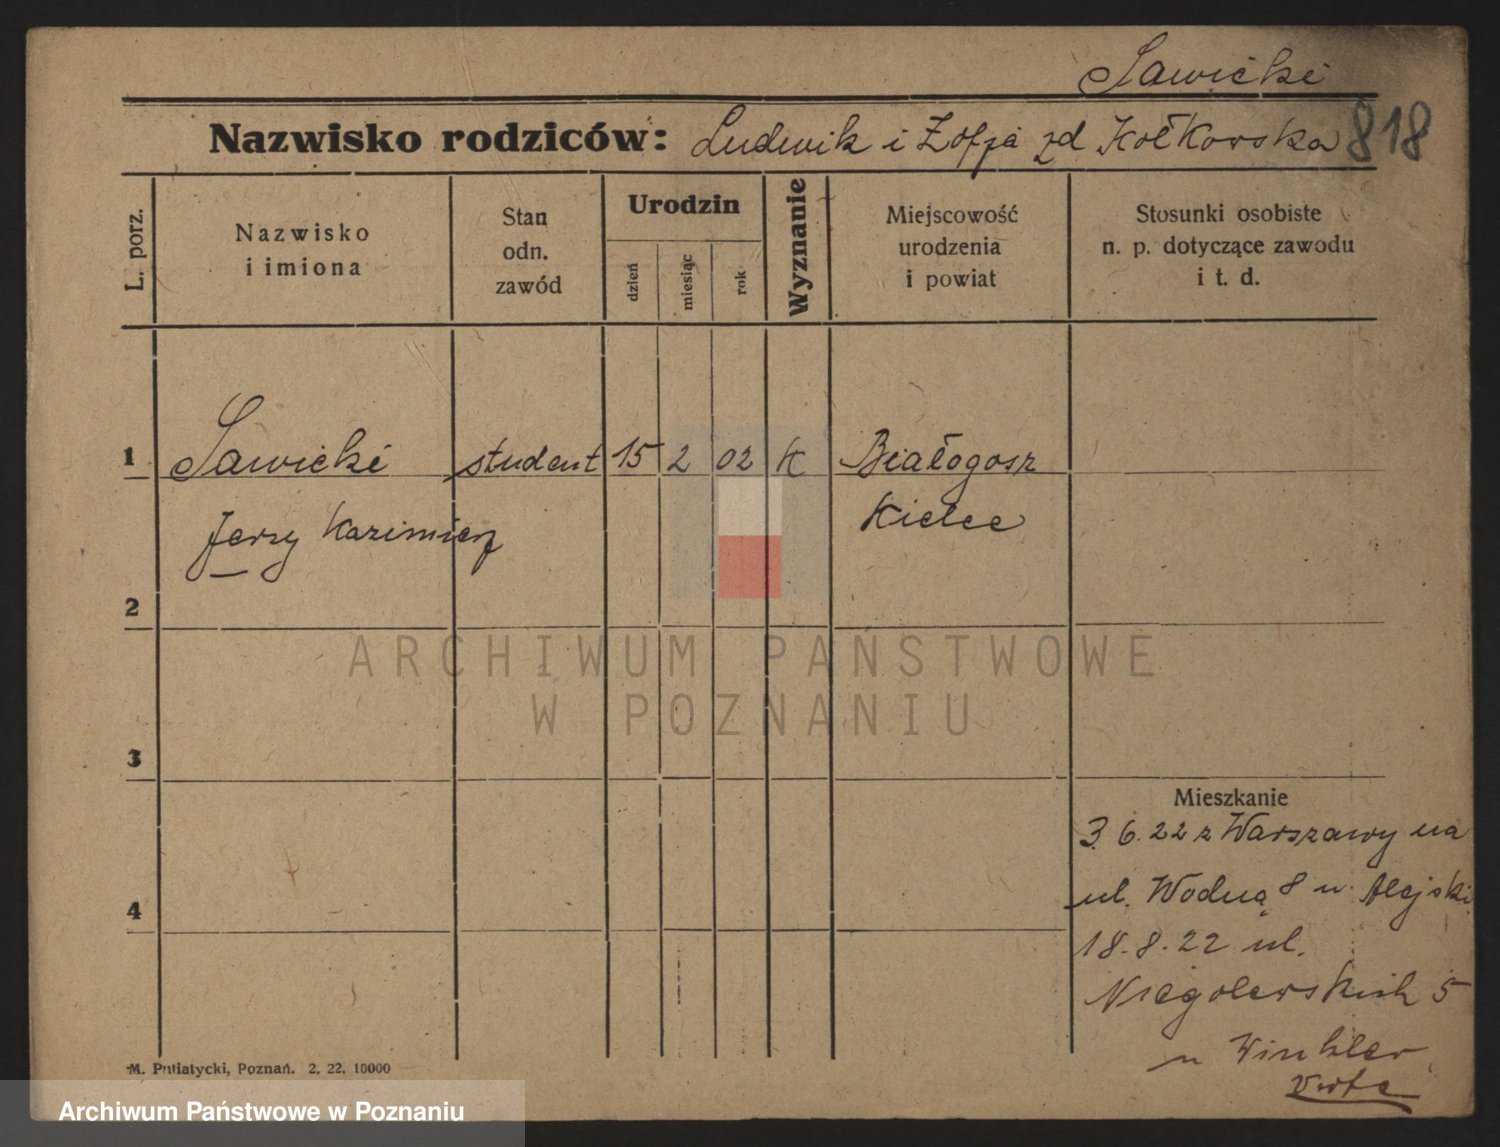 Sawicki
Nazwisko rodziców: Ludwik i Zofja zd Kołkowska 818
L. porz.
Nazwisko
i imiona
Stan
odn.
zawód
Urodzin
dzień
miesiąc
rok
Wyznanie
Miejscowość
urodzenia
i powiat
Stosunki osobiste
n. p. dotyczące zawodu
i t. d.
1 Sawicki student 15 2 02 K Białogosz
Jerzy Kazimierz Kielce
2
3
Mieszkanie
3 6. 22 z Warszawy na
ul. Wodną 8 u. Alejski
4
18. 8. 22 ul.
Niegolewskich 5
u Winkler
Verte
M. Putiatycki, Poznań. 2. 22. 10000
ARCHIWUM PAŃSTWOWE
W POZNANIU
Archiwum Państwowe w Poznaniu